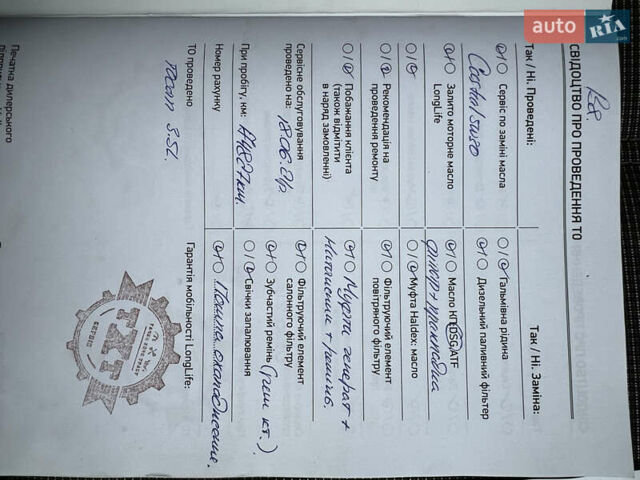 auto RIA.com
R8.
СВІДОЦТВО ПРО ПРОВЕДЕННЯ ТО
Так / Ні. Проведені:
Сервіс по заміні масла
Castrol 5w30
Запито моторне масло
LongLife
Рекомендація на
проведення ремонту
Побажання клієнта
(також відмітити
в наряд замовленні)
Сервісне обслуговування
проведено на:
18.06.21р
При пробігу, км:
Номер рахунку
ТО проведено
3.5L.
Печатка дилерського
Так / Ні. Заміна:
Гальмівна рідина
Дизельний паливний фільтер
Масло КП/DSG/ATF
фильтр + прокладка
Муфта Haldex: масло
Фільтруючий елемент
повітряного фільтру
Муфта генерат +
Натяжний +
Фільтруючий елемент
салонного фільтру
Зубчастий ремінь (грм кт.)
Свічки запалювання
Помпа охолодження.
Гарантія мобільності LongLife:
СЕРВІС